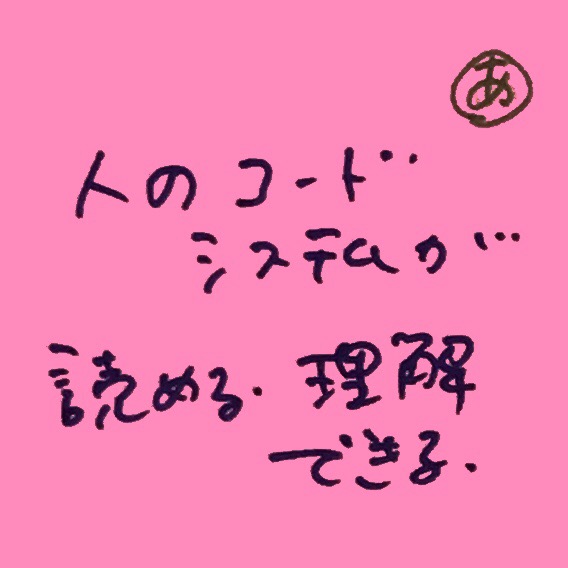 あ
人のコード
システムが
読める. 理解
できる.